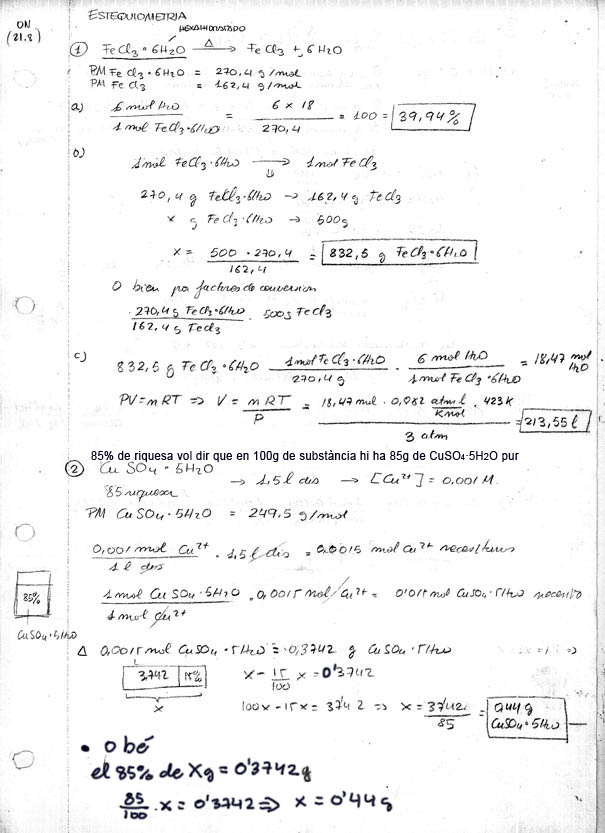 ON
(21.8)
ESTEQUIOMETRIA
HEXAHIDRATADO
① FeCl3·6H2O —Δ→ FeCl3 + 6H2O
PM FeCl3·6H2O = 270,4 g/mol
PM FeCl3 = 162,4 g/mol
a) 6 mol H2O / 1 mol FeCl3·6H2O = 6 × 18 / 270,4 = 100 = 39,94%
b)
1 mol FeCl3·6H2O → 1 mol FeCl3
⇓
270,4 g FeCl3·6H2O → 162,4 g FeCl3
x g FeCl3·6H2O → 500g
x = 500 · 270,4 / 162,4 = 832,5 g FeCl3·6H2O
O bien por factores de conversion
270,4 g FeCl3·6H2O / 162,4 g FeCl3 · 500g FeCl3
c) 832,5 g FeCl3·6H2O · 1 mol FeCl3·6H2O / 270,4 g · 6 mol H2O / 1 mol FeCl3·6H2O = 18,47 mol H2O
PV = nRT ⇒ V = nRT / P = 18,47 mol · 0,082 atm l / K mol · 423 K / 3 atm = 213,55 l
85% de riquesa vol dir que en 100g de substància hi ha 85g de CuSO4·5H2O pur
② CuSO4·5H2O → 1,5 l dis → [Cu2+] = 0,001 M
85 riquesa
PM CuSO4·5H2O = 249,5 g/mol
0,001 mol Cu2+ / 1 l dis · 1,5 l dis = 0,0015 mol Cu2+
1 mol CuSO4·5H2O / 1 mol Cu2+ · 0,0015 mol Cu2+ = 0'0015 mol CuSO4·5H2O necesito
85%
CuSO4·5H2O
Δ 0,0015 mol CuSO4·5H2O = 0,3742 g CuSO4·5H2O
3742 15%
x
x - 15/100 x = 0'3742
100x - 15x = 37'42 ⇒ x = 37'42 / 85 = 0,44 g CuSO4·5H2O
• O bé
el 85% de Xg = 0'3742g
85/100 · x = 0'3742 ⇒ x = 0'44g